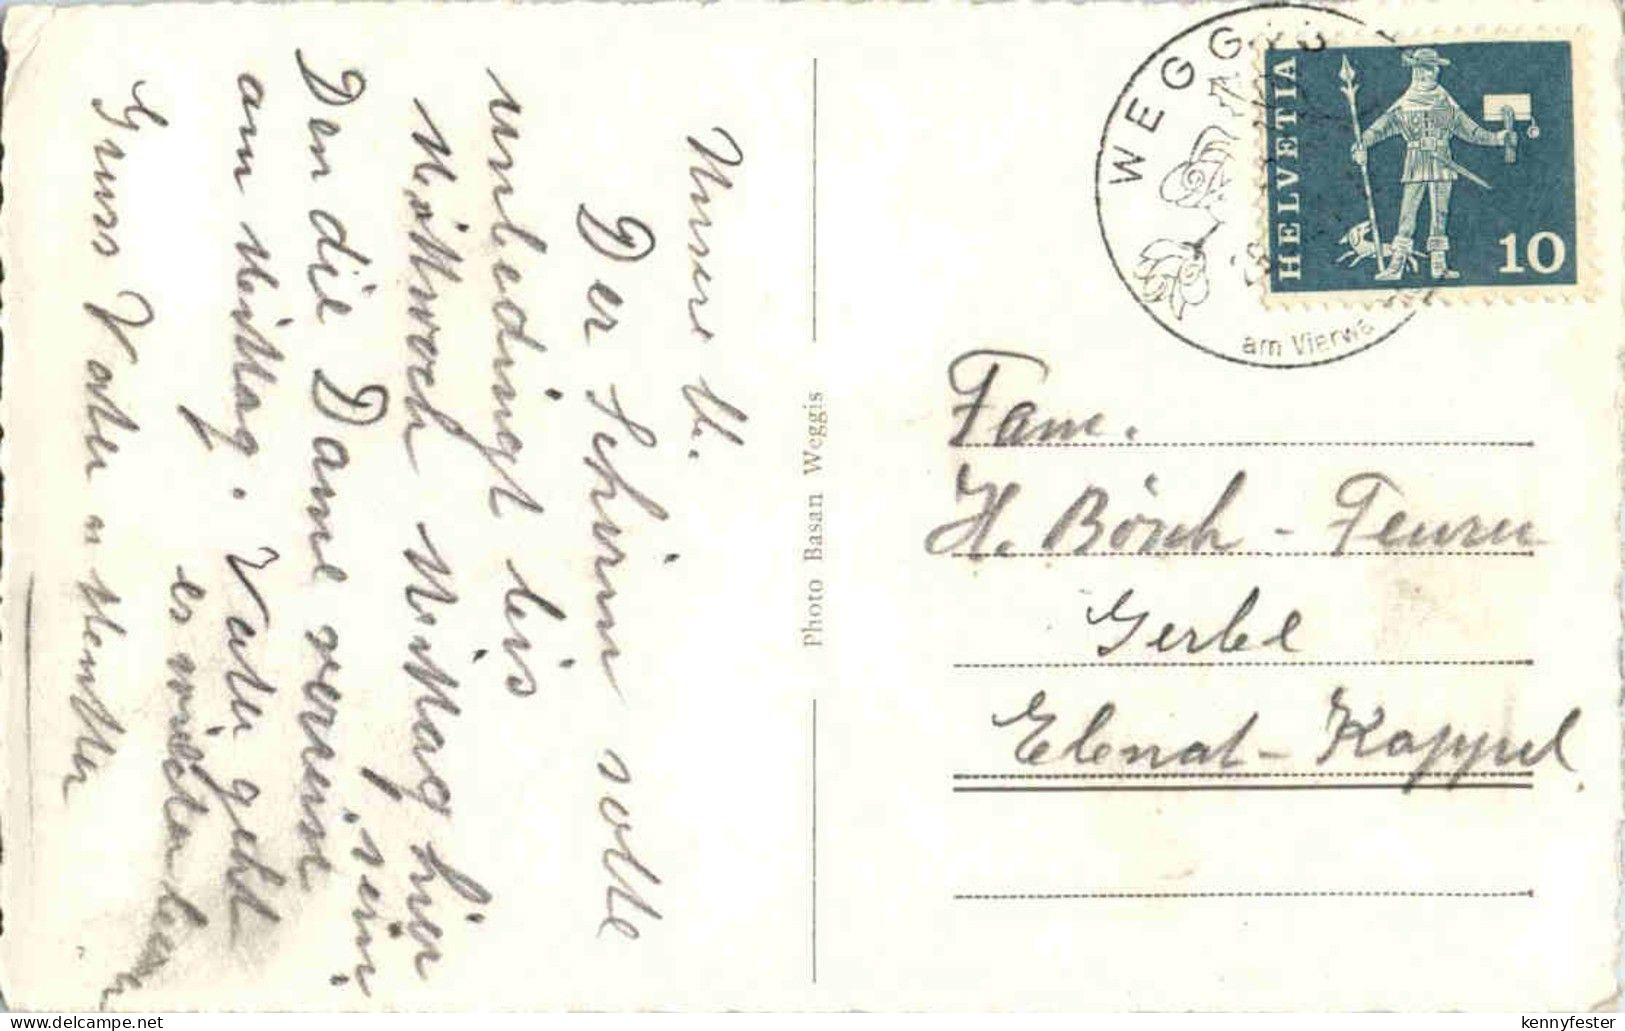 Unsere l.
Der Schirm sollte
unbedingt bis
Mittwoch Mittag hier
sein
Den die Dame verreist
am Mittag. Vater geht
es wieder besser
Gruss Vater u Mutter
Photo Basan Weggis
WEGGIS
am Vierwa
HELVETIA
10
Fam.
H. Bösch - Feurer
Gerbe
Ebnat-Kappel
kennyfester
delcampe.net